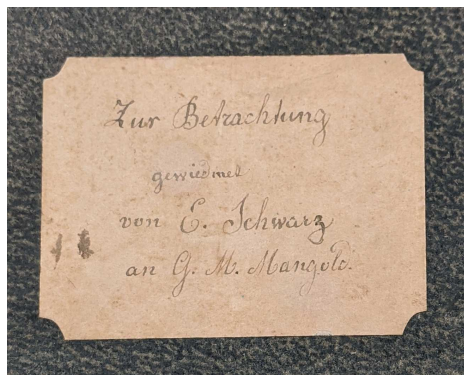 Zur Betrachtung
gewiedmet
von E. Schwarz
an G. M. Mangold.